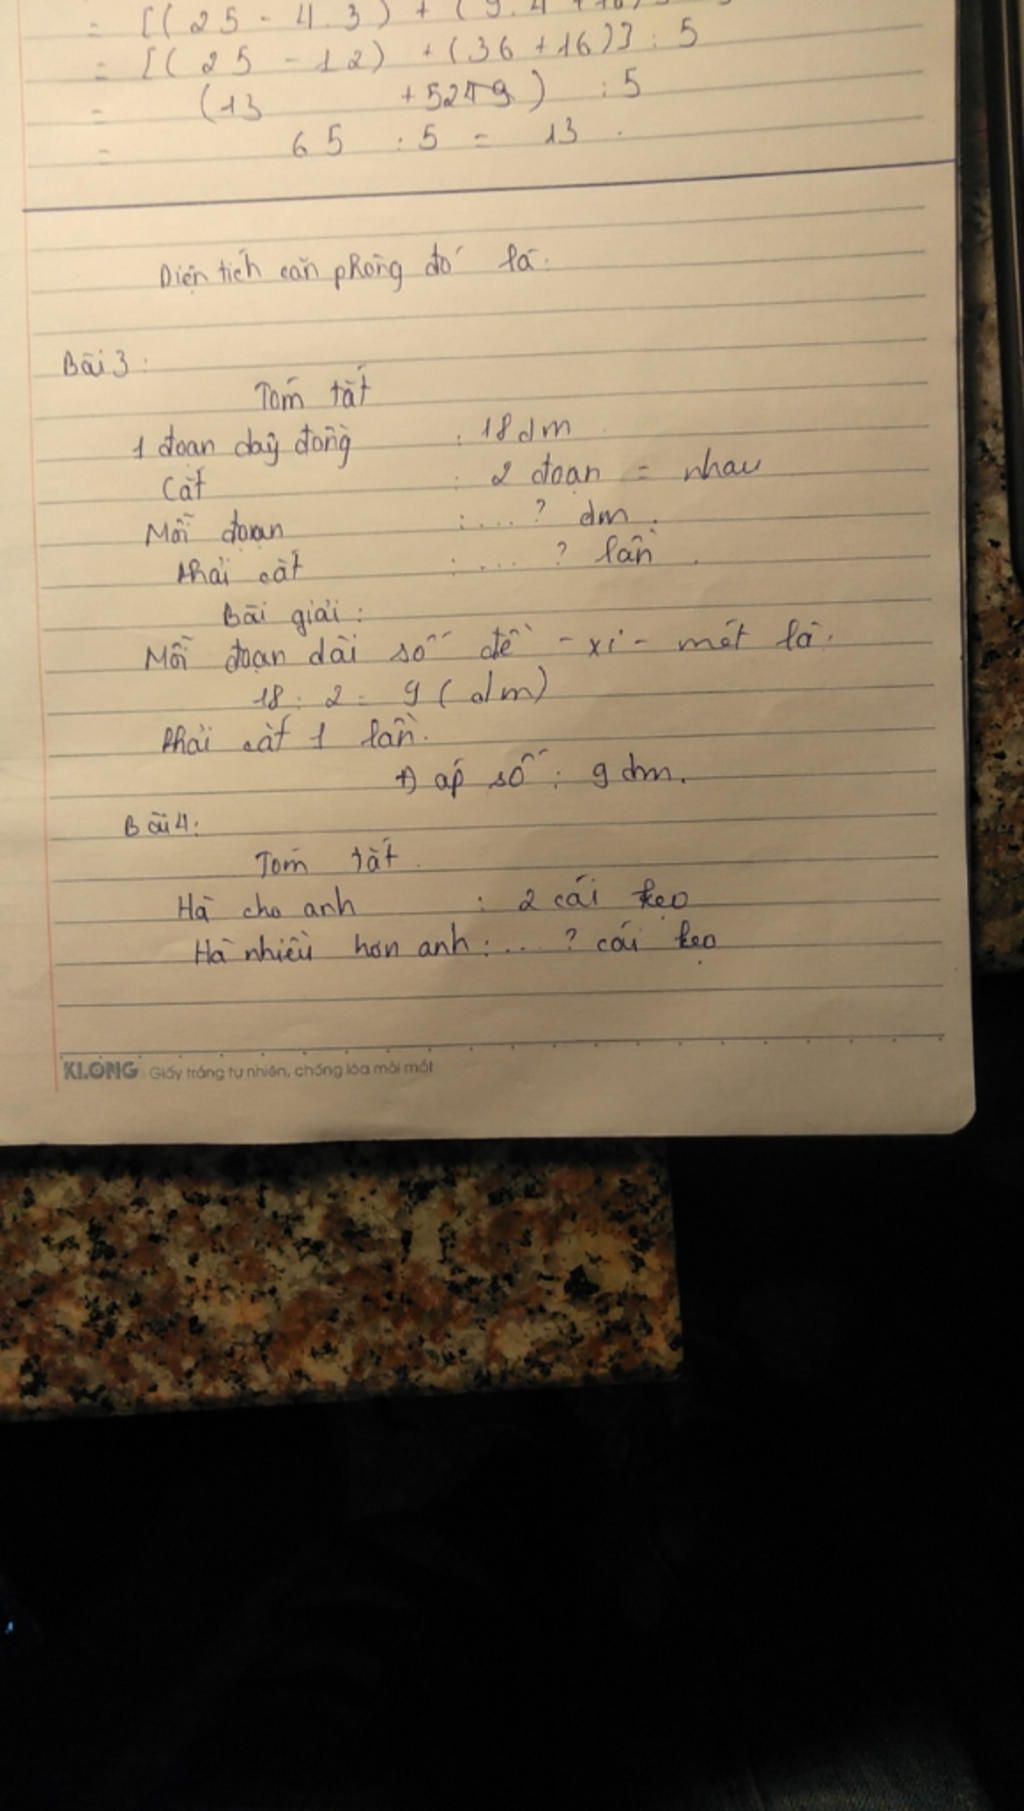 = [(25 - 4.3) + (9.4 + 16)
= [(25 - 12) + (36 + 16)] : 5
= (13 + 52 ) : 5
= 65 : 5 = 13.
Diện tích căn phòng đó là:
Bài 3:
Tóm tắt
1 đoạn dây đồng : 18dm
Cắt : 2 đoạn = nhau
Mỗi đoạn : .... ? dm.
Phải cắt : .... ? lần.
Bài giải:
Mỗi đoạn dài số đề - xi - mét là:
18 : 2 = 9 (dm)
Phải cắt 1 lần.
Đáp số : 9 dm.
Bài 4:
Tóm tắt.
Hà cho anh : 2 cái kẹo
Hà nhiều hơn anh : ... ? cái kẹo
KLONG Giấy trắng tự nhiên, chống lóa mỏi mắt